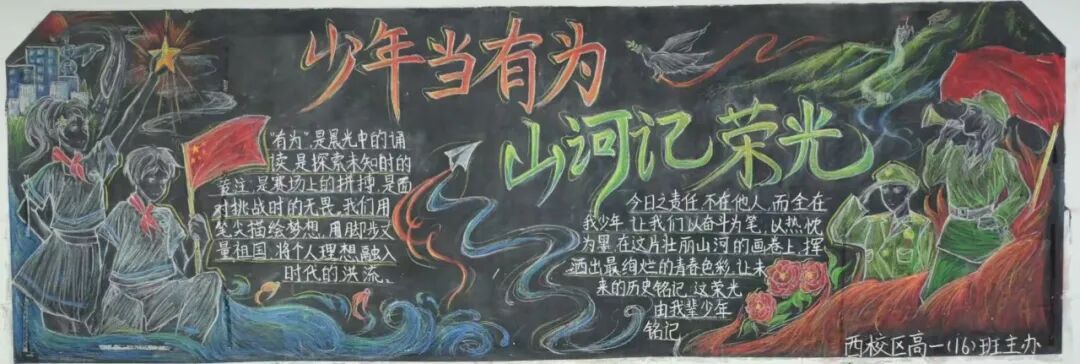 少年当有为
山河记荣光
"有为"是晨光中的诵
读,是探索未知时的
专注,是赛场上的拼搏,是面
对挑战时的无畏。我们用
笔尖描绘梦想,用脚步丈
量祖国,将个人理想融入
时代的洪流。
今日之责任,不在他人,而全在
我少年,让我们以奋斗为笔,以热忱
为墨,在这片壮丽山河的画卷上,挥
洒出最绚烂的青春色彩,让未
来的历史铭记,这荣光
由我辈少年
铭记
西校区高一(16)班主办